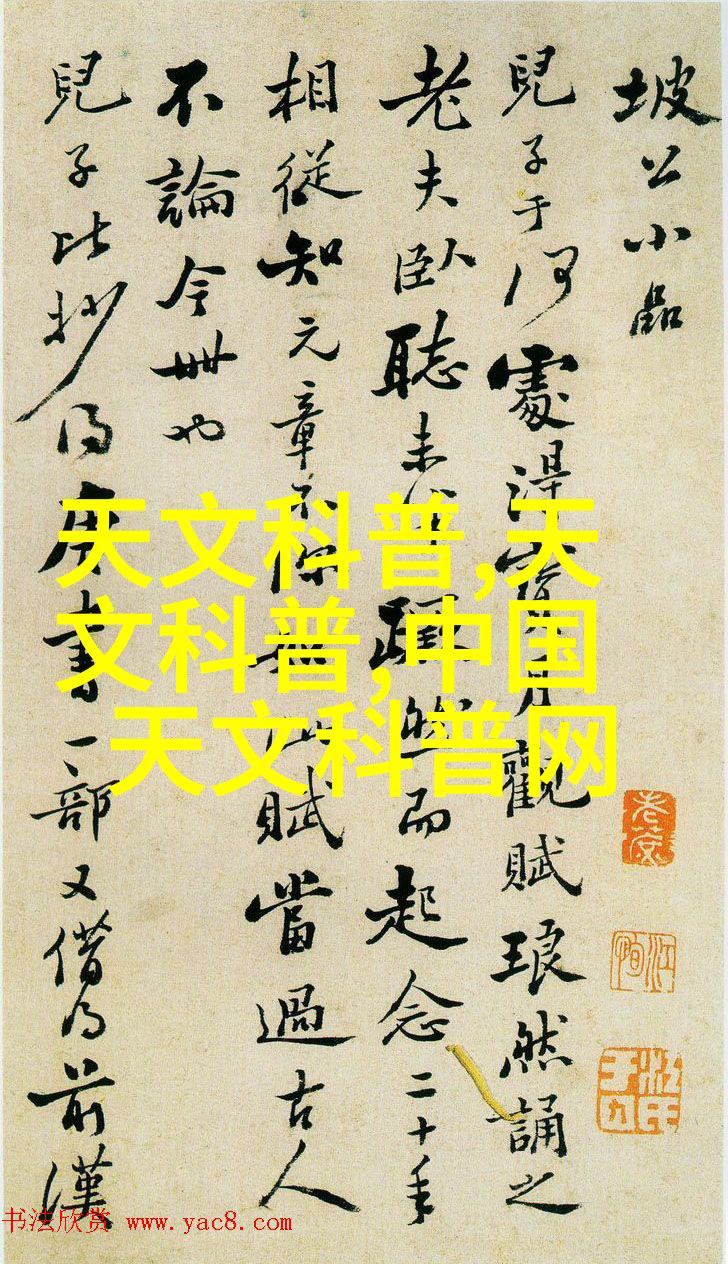 坡公小品
兒子于何處得寶月觀賦琅然誦之
老夫臥聽未半躍然而起念二十年
相從知元章不盡此賦當過古人
不論今世也
兒子比抄得唐書一部又借得前漢
天文科普,天
文科普,中国
天文科普网
书法欣赏 www.yac8.com